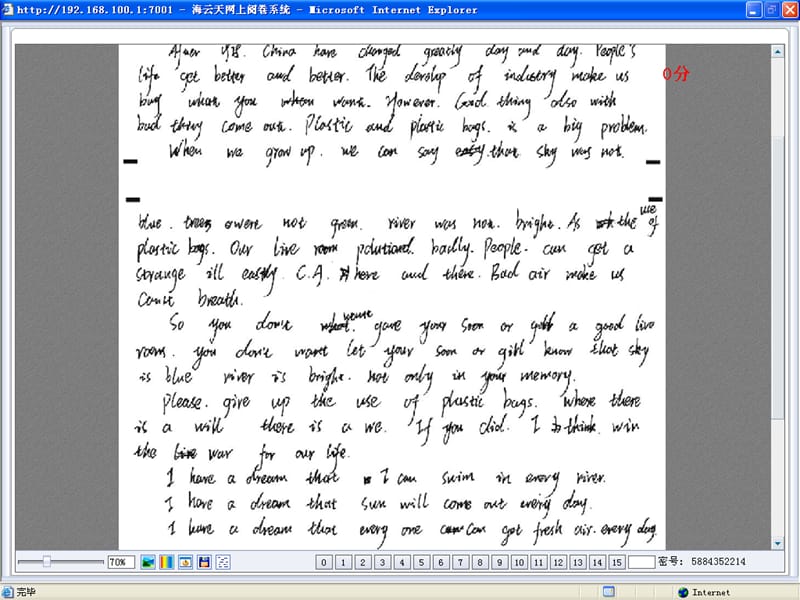 http://192.168.100.1:7001 - 海云天网上阅卷系统 - Microsoft Internet Explorer
0分
After 改革. China have changed greatly day and day. People's
life get better and better. The develop of industry make us
buy what you when want. However. Good thing also with
bad thing come out. Plastic and plastic bags. is a big problem.
When we grow up. we can say that sky was not.
blue. trees were not green. river was not. bright. As the use of
plastic bags. Our live room polutiant. badly. People. can get a
strange ill easily. C.A. here and there. Bad air make us
Can't breath.
So you don't want gave your soon or gill a good live
room. you don't want let your soon or gill know that sky
is blue river is bright. not only in your memory.
Please. give up the use of plastic bags. Where there
is a will there is a we. If you did. I think. win
the war for our life.
I have a dream that I can swim in every river.
I have a dream that sun will come out every day.
I have a dream that every one can got fresh air. every day.
70%
0 1 2 3 4 5 6 7 8 9 10 11 12 13 14 15 密号: 5884352214
完毕 Internet